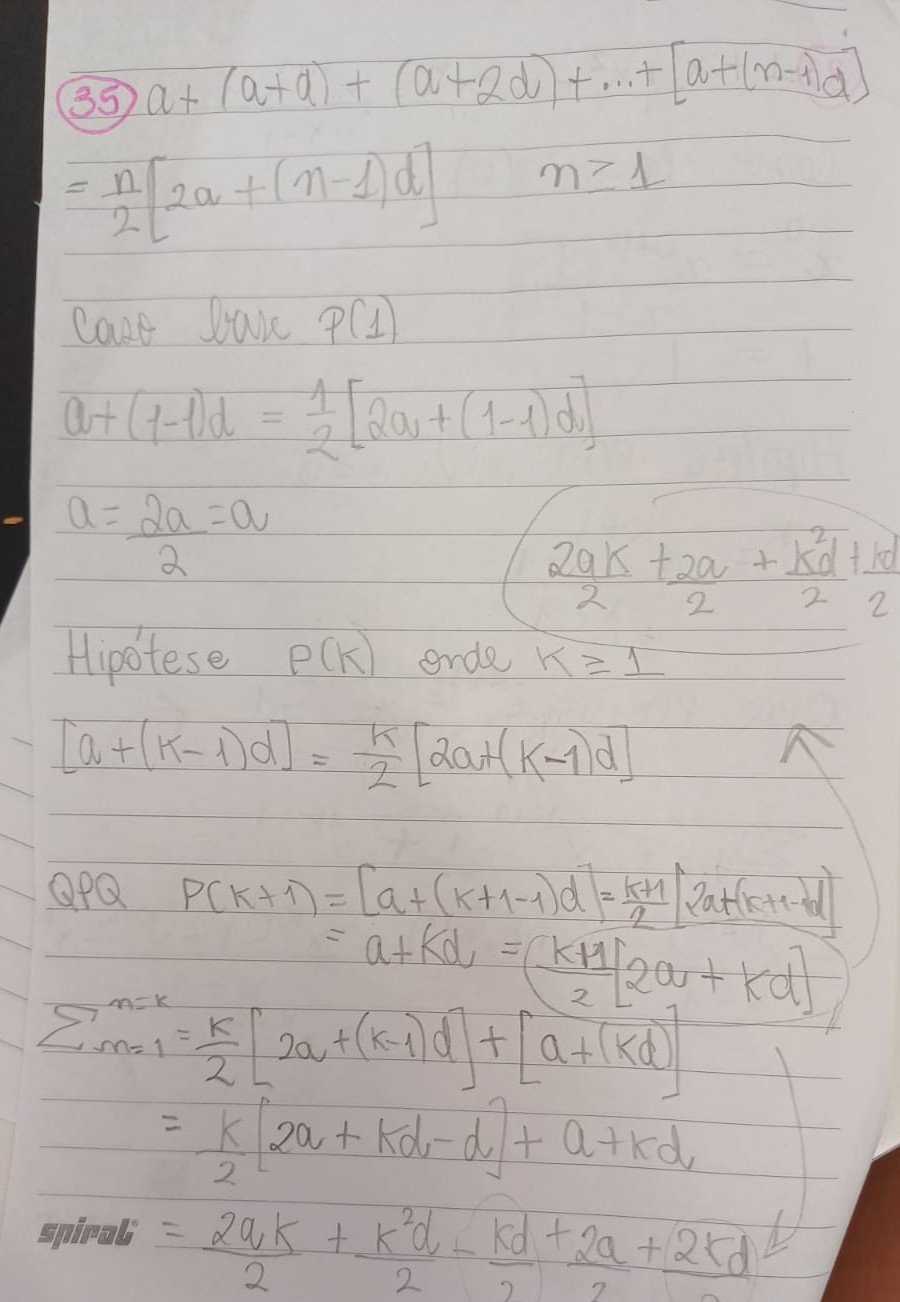 35) a + (a+d) + (a+2d) + ... + [a+(n-1)d]
= n/2 [2a + (n-1)d] n ≥ 1
Caso base P(1)
a+(1-1)d = 1/2 [2a + (1-1)d]
a = 2a/2 = a
2ak/2 + 2a/2 + k²d/2 + kd/2
Hipótese P(K) onde K ≥ 1
[a+(K-1)d] = K/2 [2a+(K-1)d]
QPQ P(K+1) = [a+(K+1-1)d] = K+1/2 [2a+(K+1-1)d]
= a+Kd = K+1/2 [2a + Kd]
∑ n=k n=1 = K/2 [2a + (K-1)d] + [a+(Kd)]
= K/2 [2a + Kd - d] + a + Kd
spiral = 2ak/2 + k²d/2 - kd/2 + 2a/2 + 2kd/2